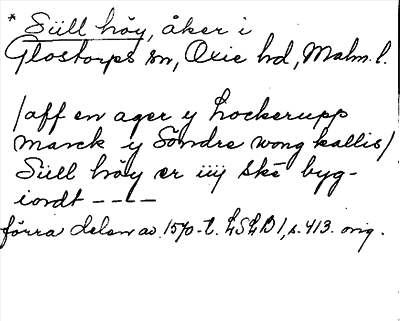 * Süll höy, åker i
Glostorps sn, Oxie hd, Malm. l.
/aff en ager y Lockerupp
marck y Söndre wong kallis/
Süll höy er iiij ske byg-
iordt ----
förra delen av 1570-t. LSLD 1, s. 413. orig.